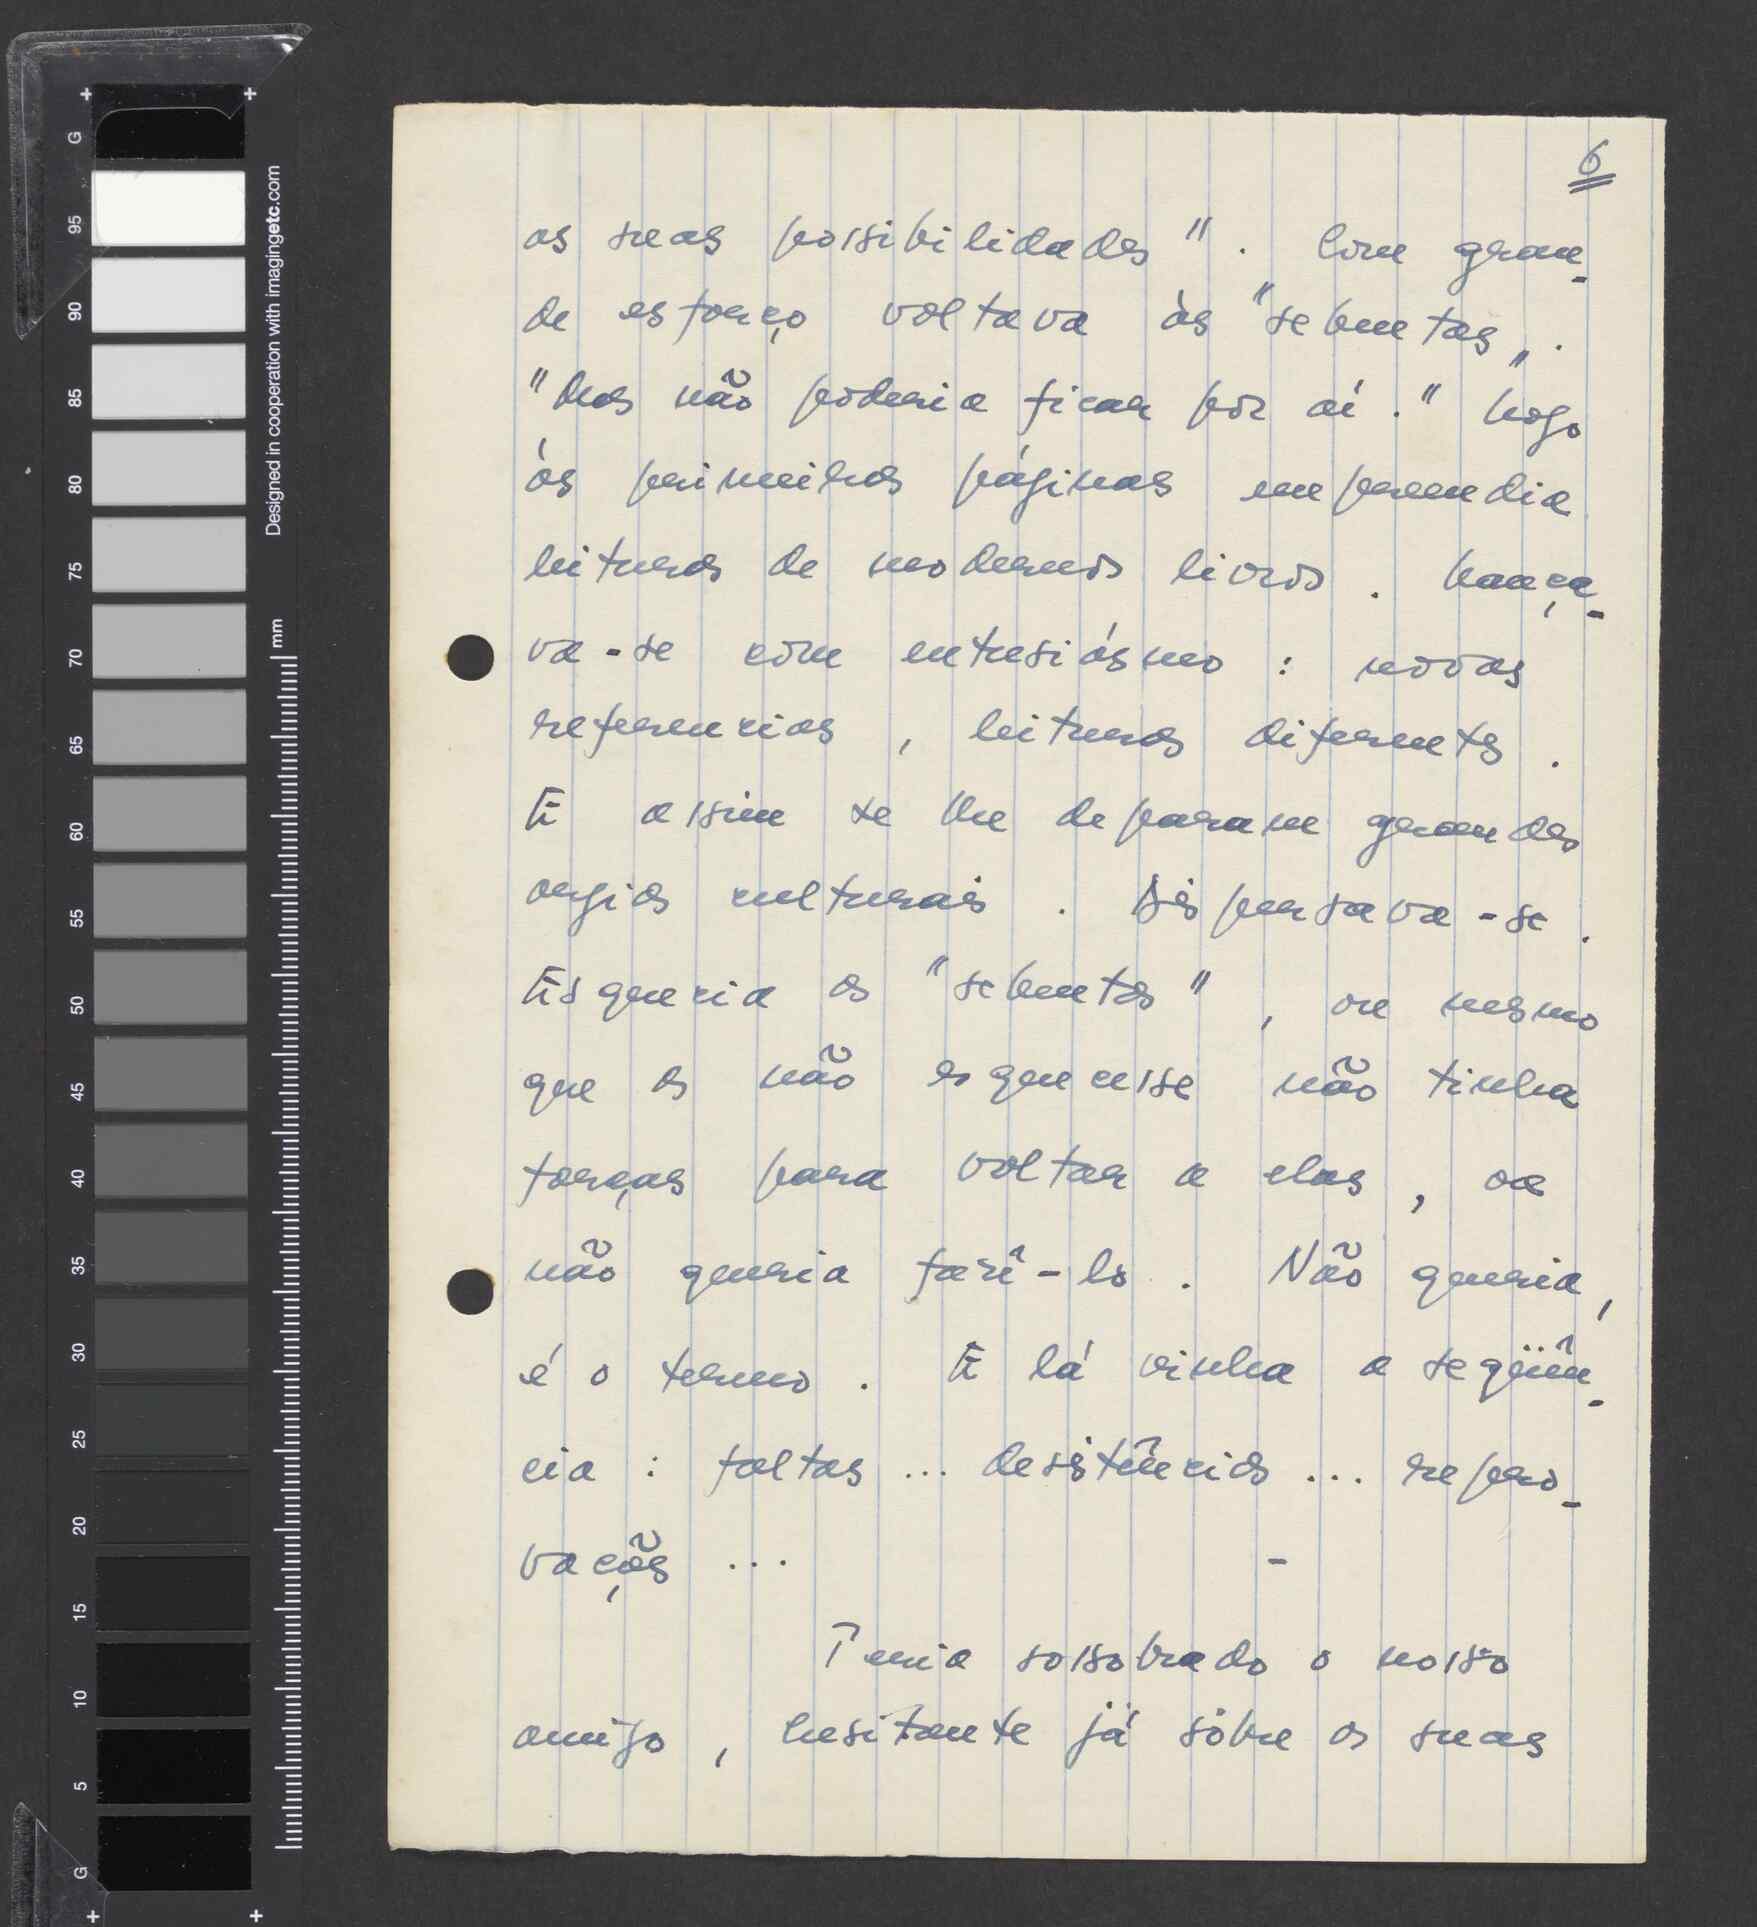 6
as suas possibilidades". Com gran-
de esforço voltava às "sebentas".
"Mas não poderia ficar por aí." Logo
às primeiras páginas empreendia
leituras de modernos livros. Lança-
va-se com entusiásmo: novas
referencias, leituras diferentes.
E assim se lhe deparam grandes
orgias culturais. Dispersava-se.
Esquecia as "sebentas", ou mesmo
que as não esquecesse não tinha
forças para voltar a elas, ou
não queria fazê-lo. Não queria,
é o termo. E lá vinha a seqüên-
cia: faltas... desistências... repro-
vações... -
Teria sossobrado o nosso
amigo, hesitante já sôbre as suas
G
95
90
85
80
75
70
65
60
55
50
45
40
35
30
25
20
15
10
5
G
Designed in cooperation with imagingetc.com
mm